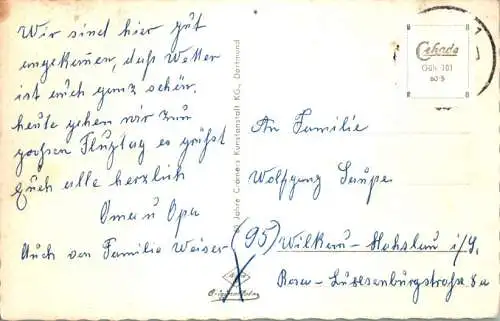 Wir sind hier gut
angekommen, das Wetter
ist auch ganz schön.
heute gehen wir zum
großen Flugtag es grüßt
Euch alle herzlich
Oma u Opa
Auch von Familie Weiser
Jahre Cramers Kunstanstalt KG., Dortmund
Cekade
Güh 101
60/9
An Familie
Wolfgang Saupe
(95) Wilkau-Haßlau i/S.
Rosa-Luxemburgstraße 8a